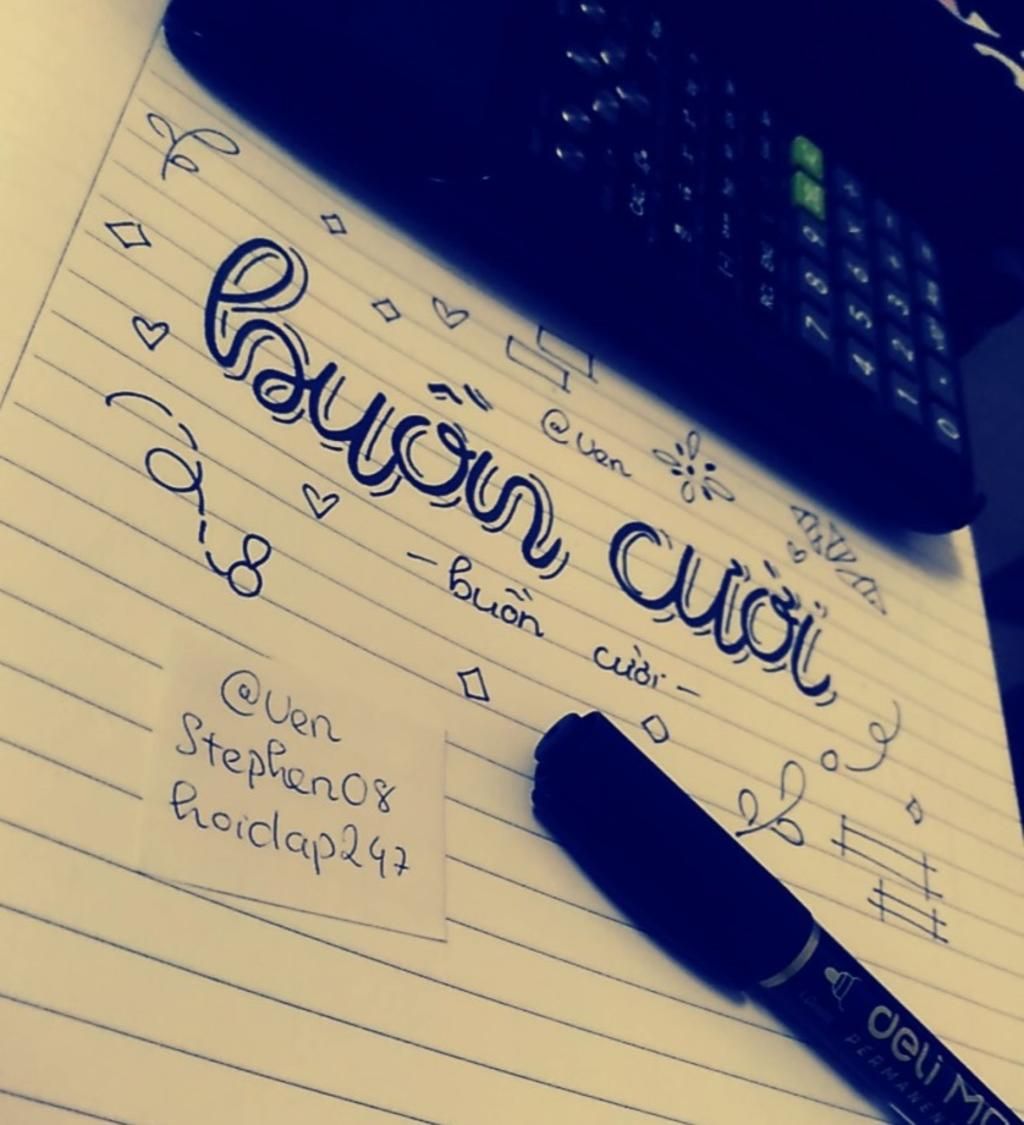 buồn cười
@Uen
-buồn cười-
@Uen
Stephen08
hoidap247
deli
PERMANEN
7 8 9
4 5 6
1 2 3
0 .